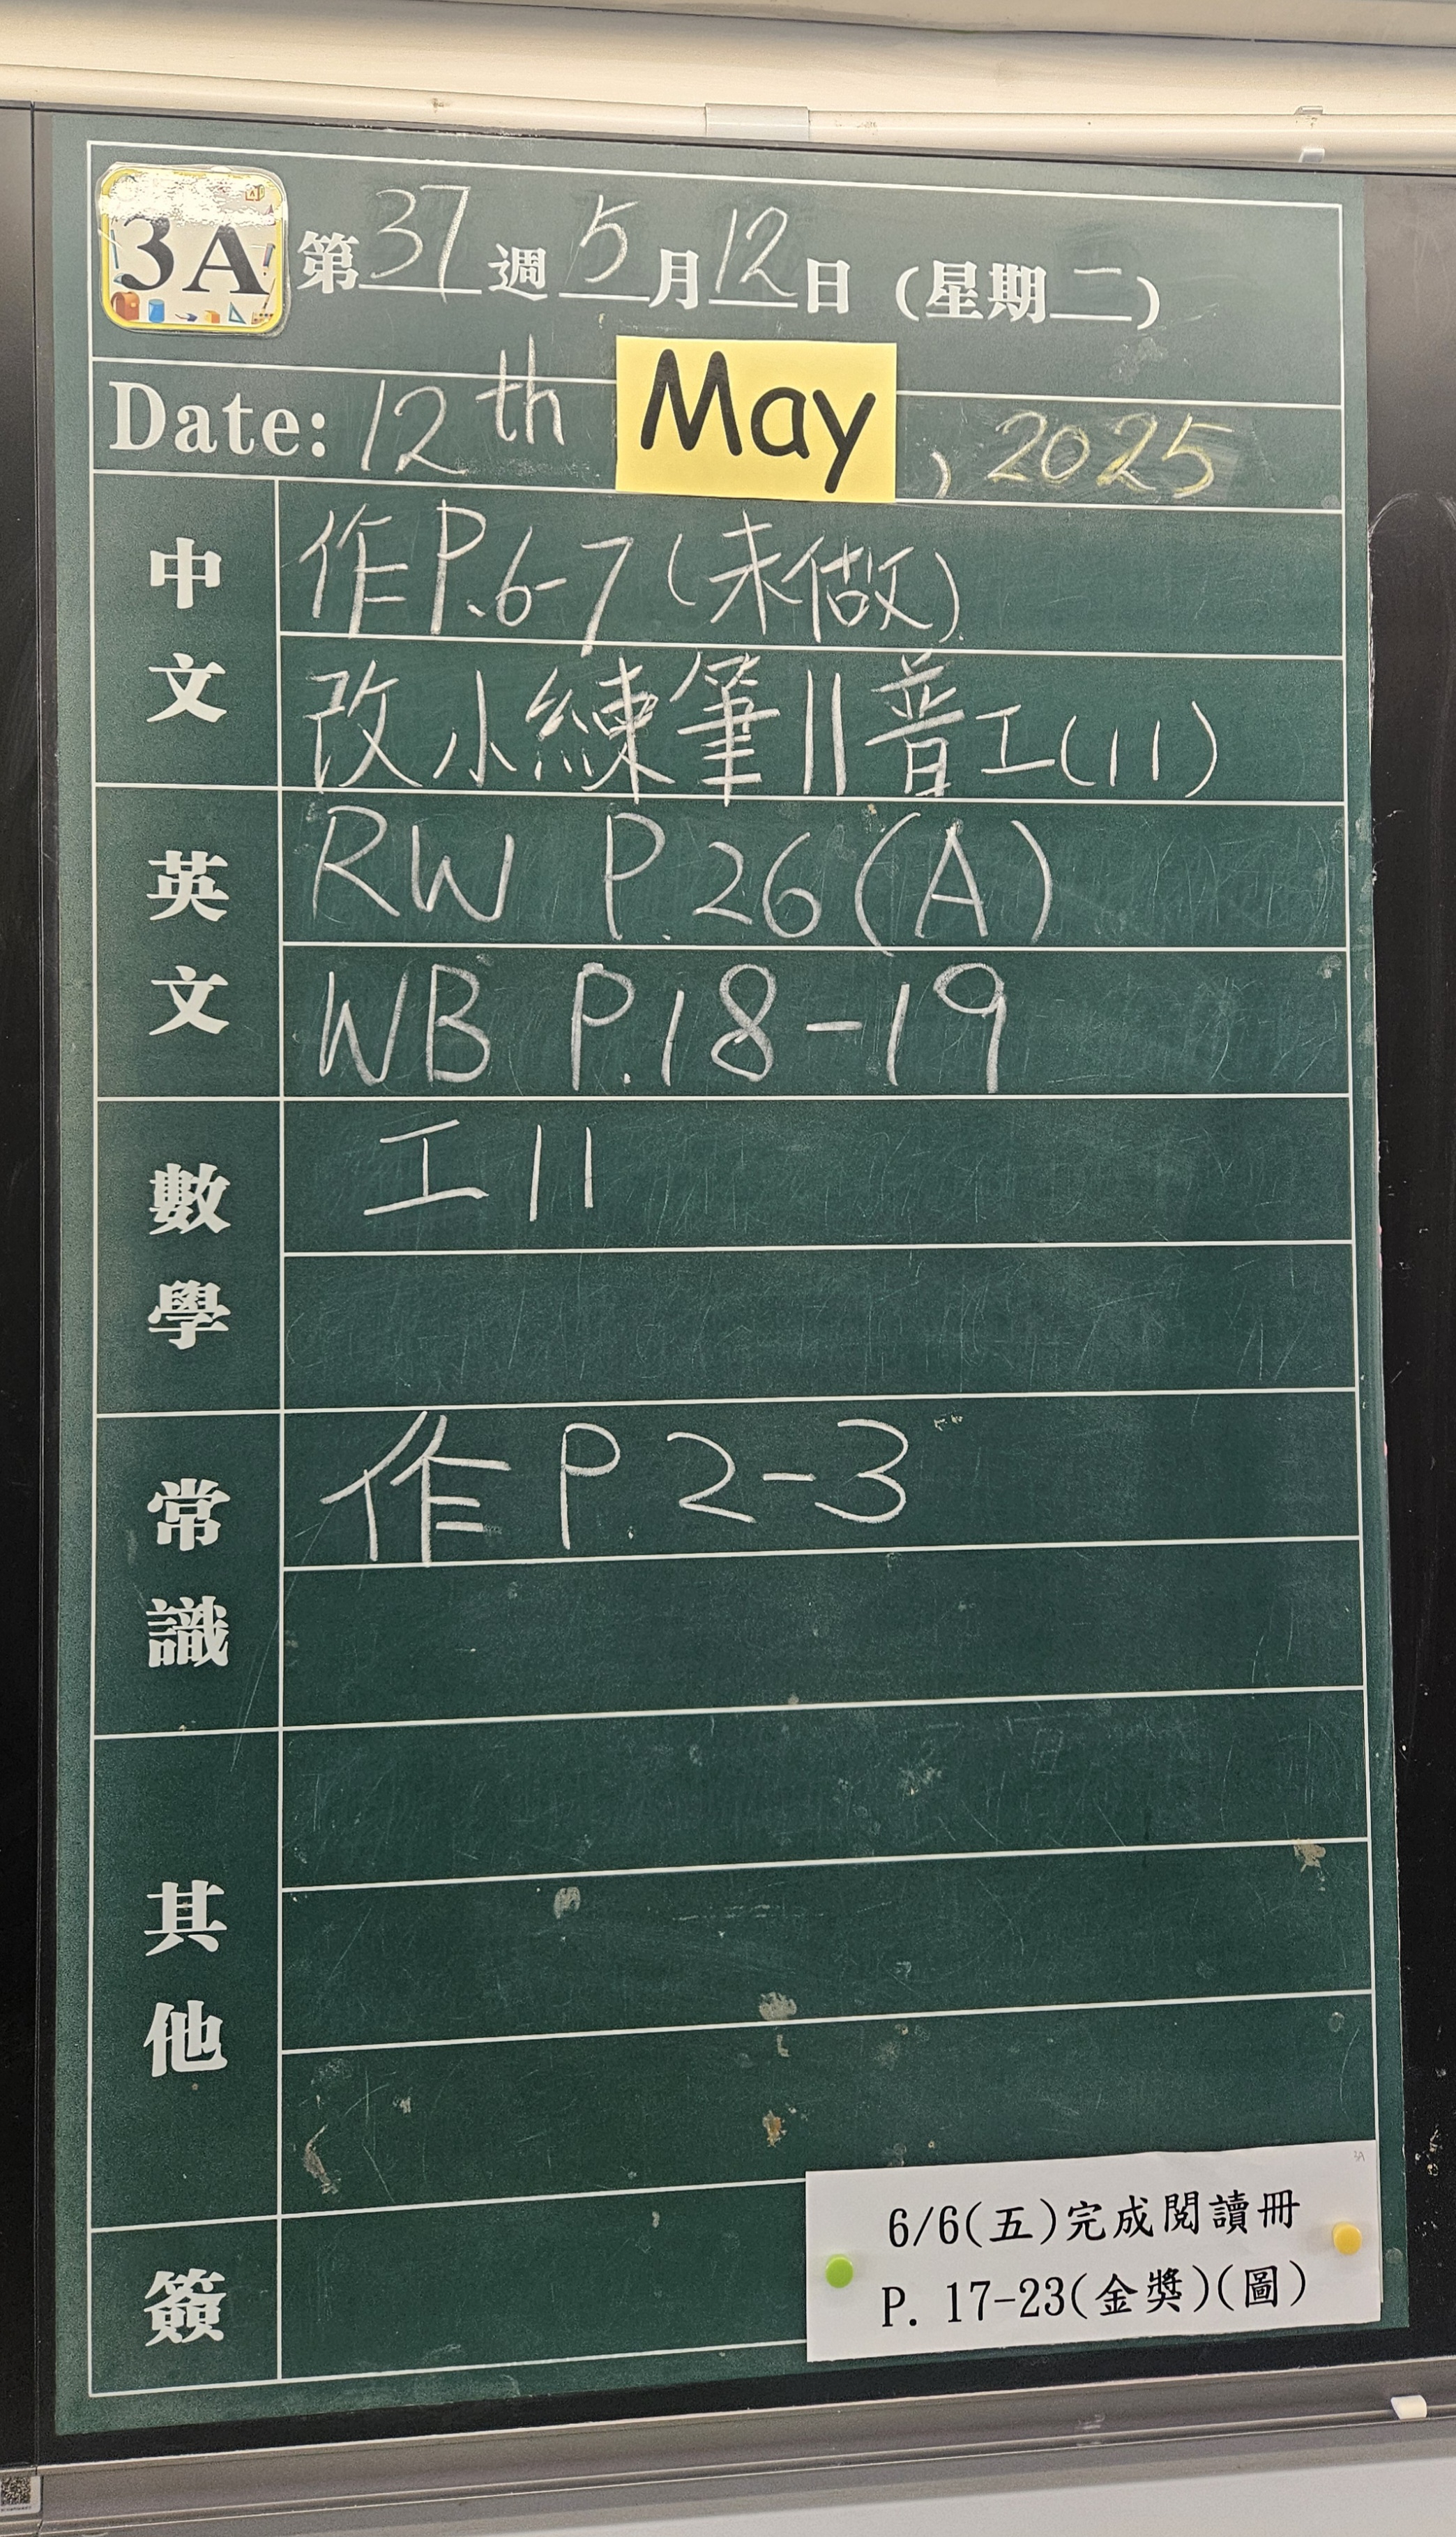 3A 第37週 5月12日 (星期二)
Date: 12th May, 2025
中文
作P.6-7(未做)
改小練筆||普工(11)
英文
RW P.26(A)
WB P.18-19
數學
工11
常識
作P.2-3
其他
簽
3A
6/6(五)完成閱讀冊
P. 17-23(金獎)(圖)